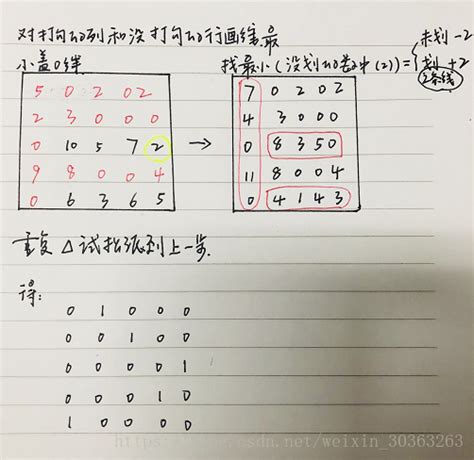 对打勾的列和没打勾的行画线,最
小盖0线
找最小(没划的卷中(2))= 未划-2
划+2
2条线
5 0 2 0 2
2 3 0 0 0
0 10 5 7 2
9 8 0 0 4
0 6 3 6 5
→
7 0 2 0 2
4 3 0 0 0
0 8 3 5 0
11 8 0 0 4
0 4 1 4 3
重复△试指派到上一步.
得:
0 1 0 0 0
0 0 1 0 0
0 0 0 0 1
0 0 0 1 0
1 0 0 0 0
csdn.net/weixin_30363263